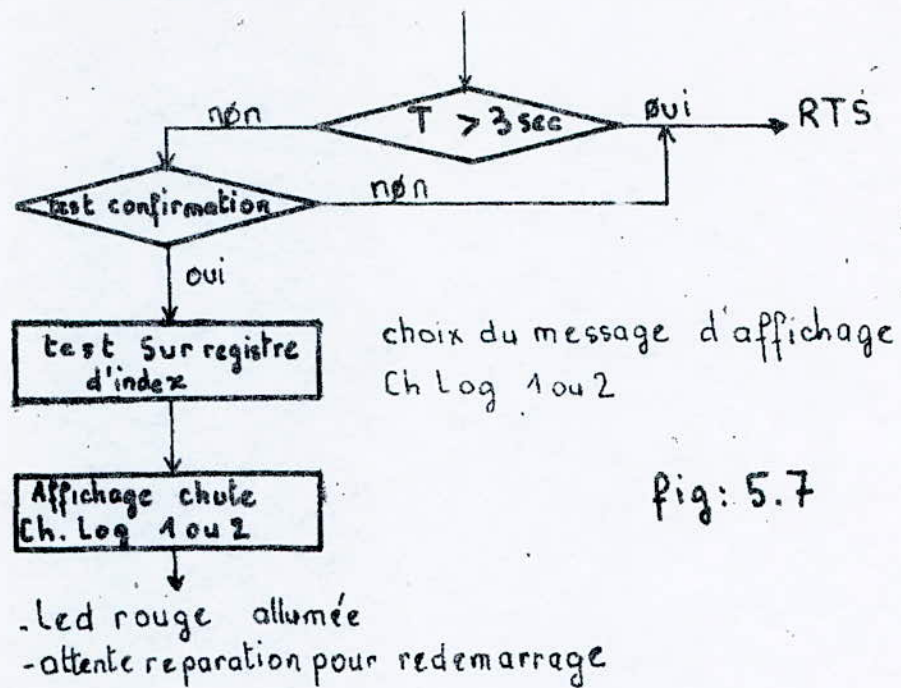 T > 3 sec
nøn
øui
RTS
test confirmation
nøn
oui
test Sur registre
d'index
choix du message d'affichage
Ch Log 1 ou 2
Affichage chute
Ch. Log 1 ou 2
fig: 5.7
. Led rouge allumée
- attente reparation pour redemarrage